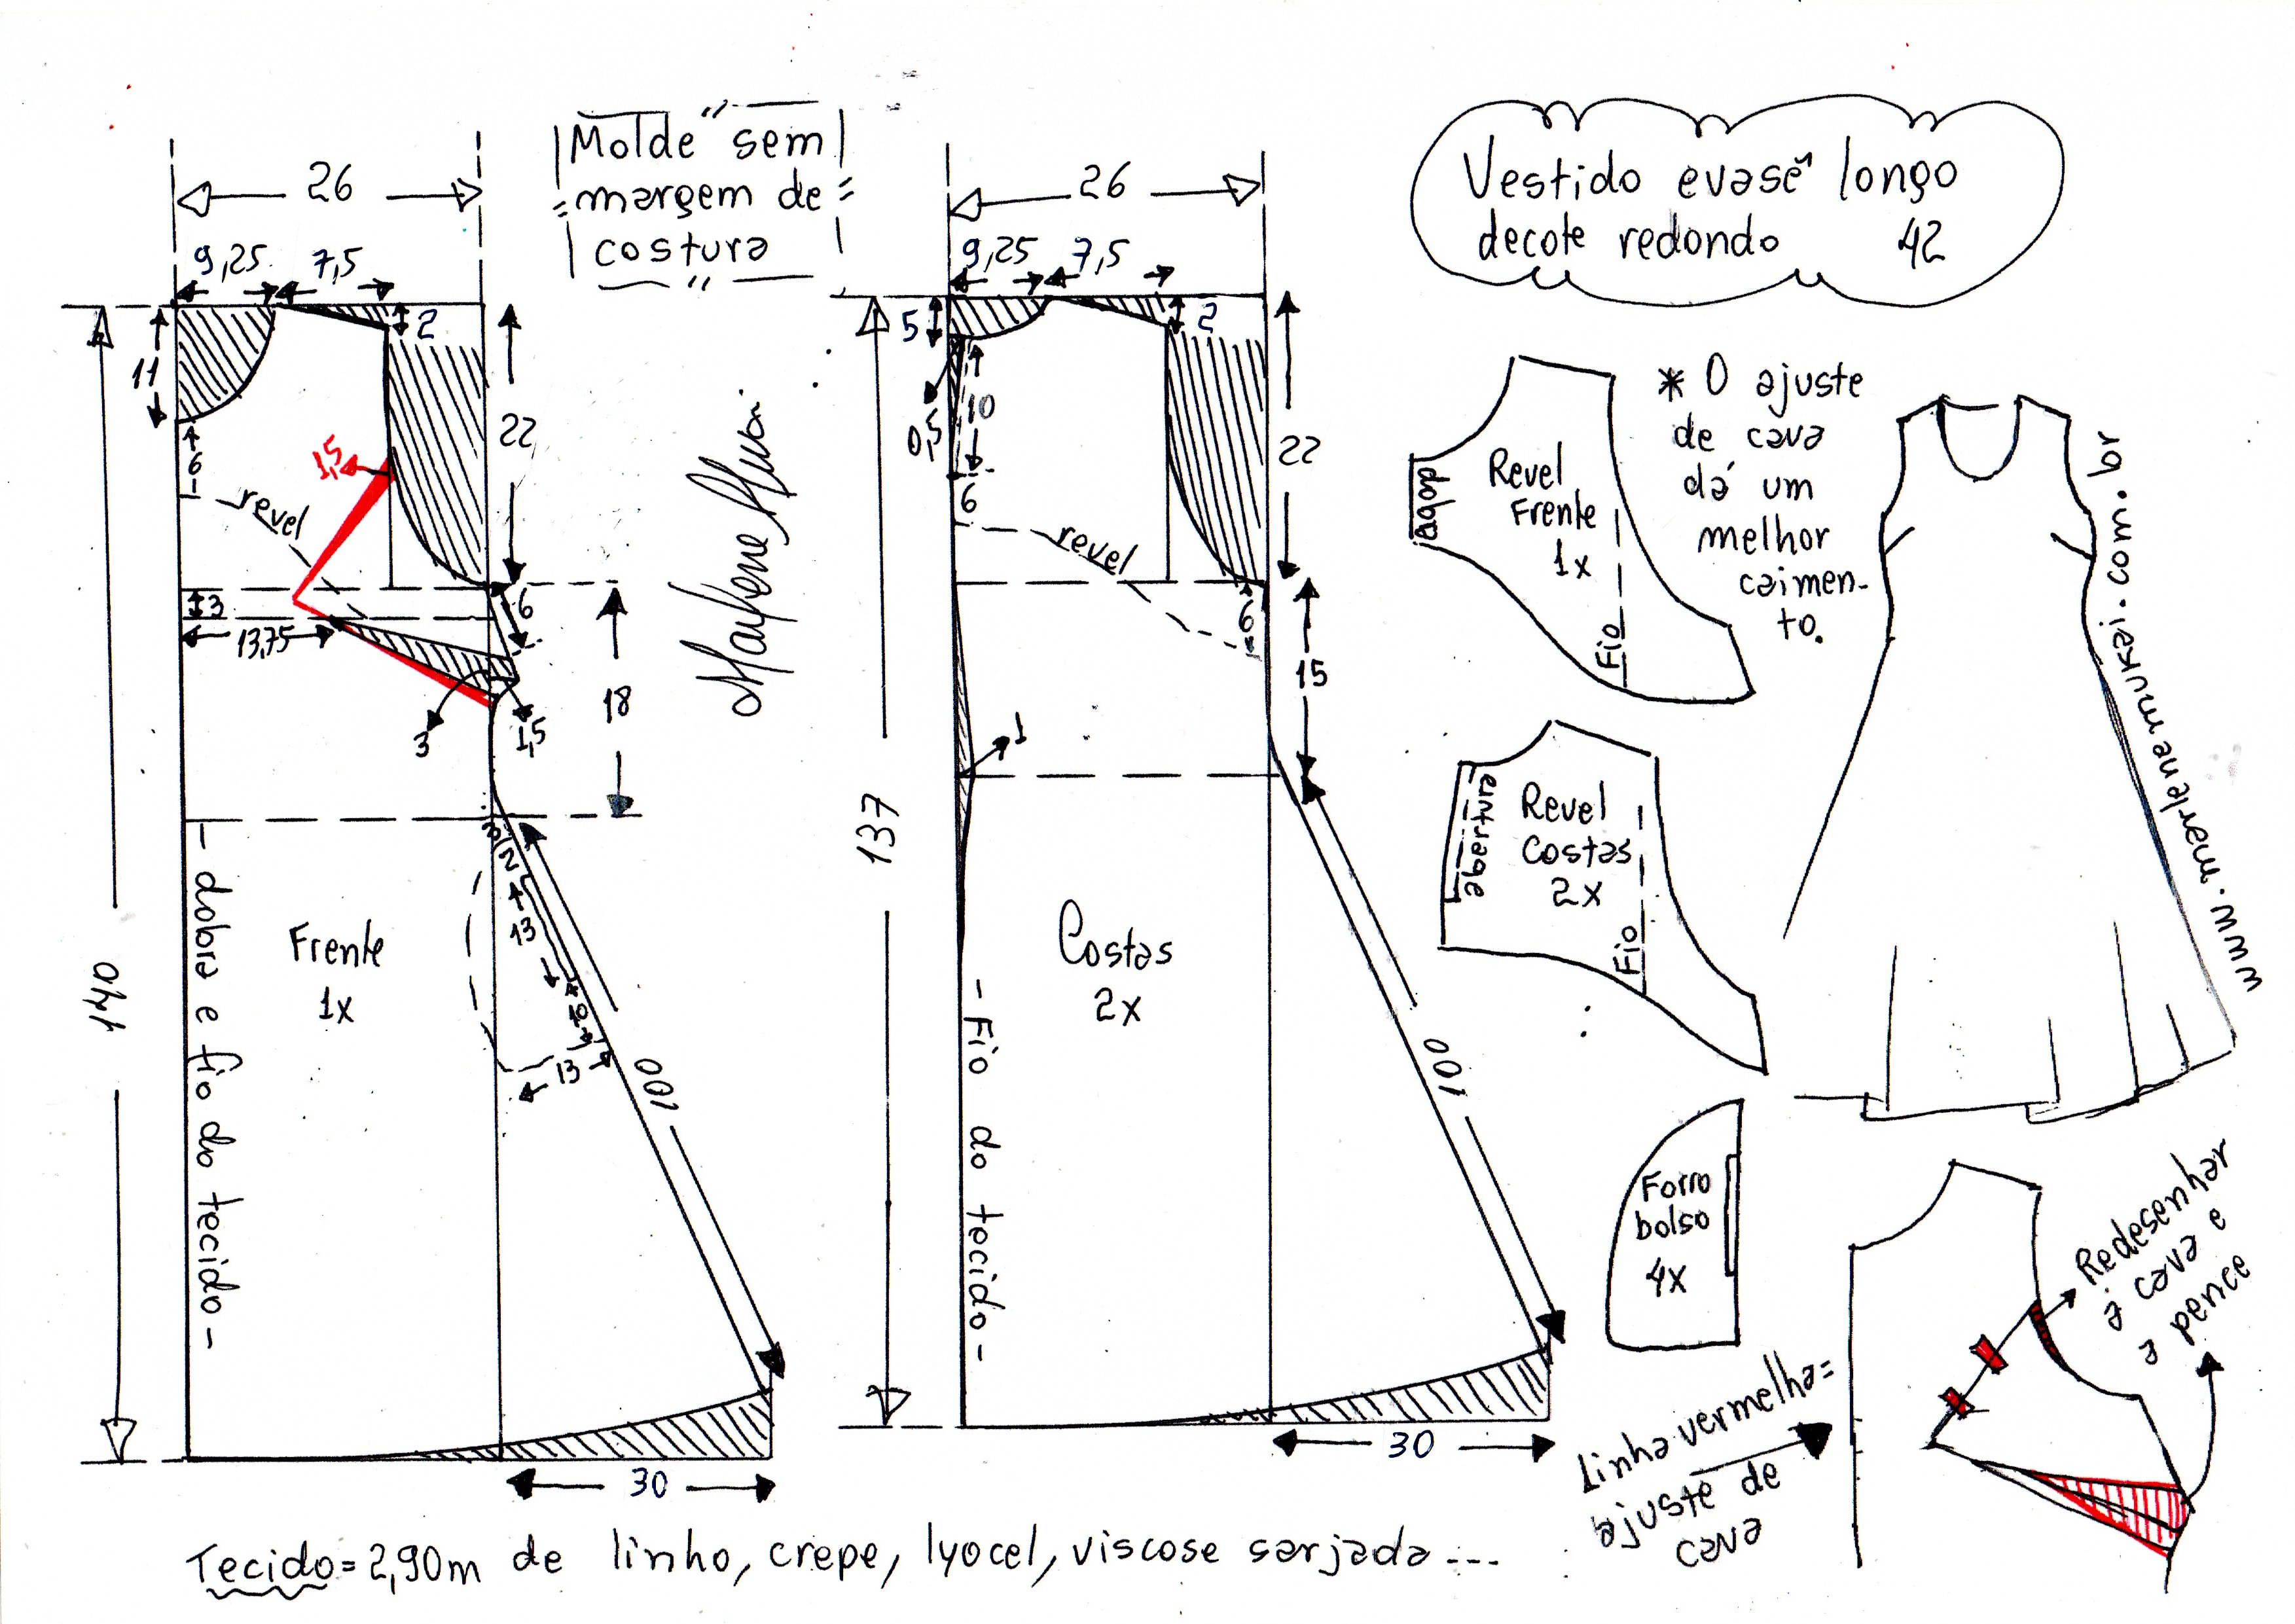 Molde sem
margem de
costura
Vestido evasê longo
decote redondo 42
26
9,25 7,5
2
11
22
6
1,5
revel
3
13,75
6
3
1,5
18
140
- dobra e fio do tecido -
Frente
1x
2
13
10
13
100
30
26
9,25 7,5
5
2
10
0,5
22
6
revel
6
15
1
137
Costas
2x
- Fio do tecido -
100
30
Revel
Frente
1x
dobra
Fio
* O ajuste
de cava
dá um
melhor
caimen-
to.
Revel
Costas
2x
abertura
Fio
www.marlenemukai.com.br
Forro
bolso
4x
Redesenhar
a cava e
a pence
linha vermelha=
ajuste de
cava
Tecido=2,90m de linho, crepe, lyocel, viscose sarjada...